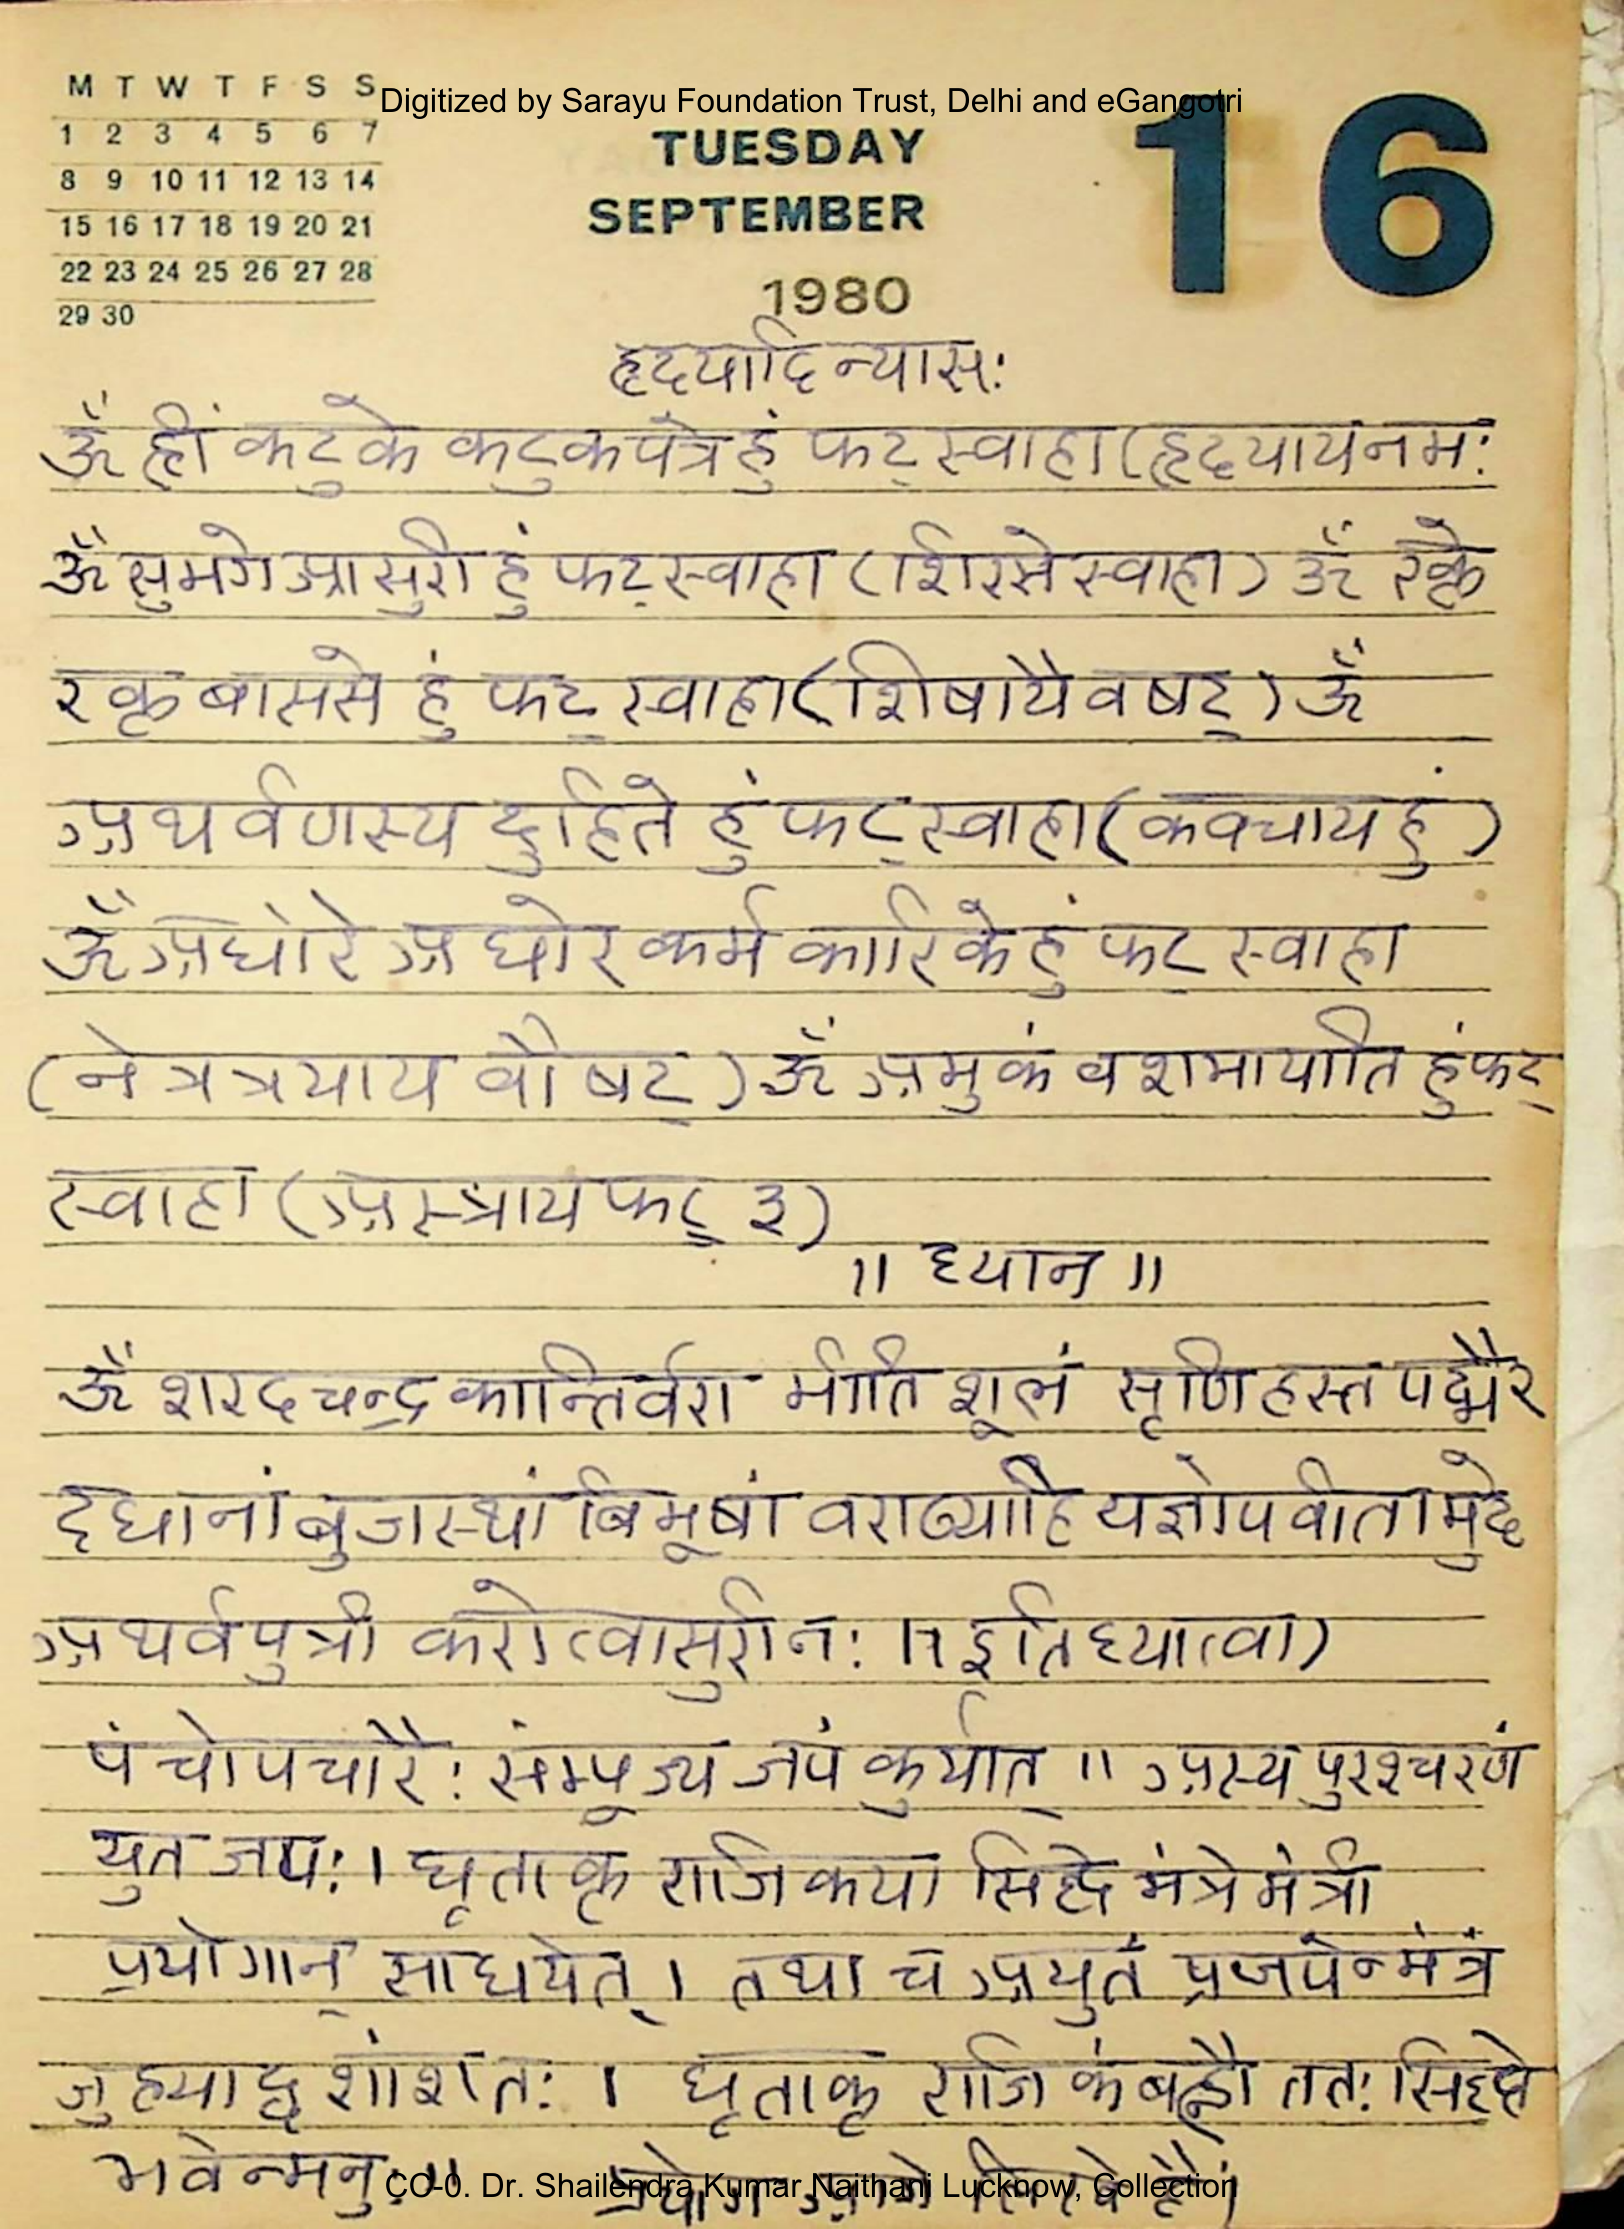 M T W T F S S
Digitized by Sarayu Foundation Trust, Delhi and eGangotri
1 2 3 4 5 6 7
8 9 10 11 12 13 14
15 16 17 18 19 20 21
22 23 24 25 26 27 28
29 30
TUESDAY
SEPTEMBER
1980
16
हृदयादि न्यास:
ॐ ह्रीं कटुके कटुकपत्रे हुं फट् स्वाहा (हृदयाय नम:
ॐ सुभगे आसुरी हुं फट् स्वाहा (शिरसे स्वाहा) ॐ रक्ते
रक्त बाससे हुं फट् स्वाहा (शिषायै वषट्) ॐ
अथर्वणस्य दुहिते हुं फट् स्वाहा (कवचाय हुं)
ॐ अघोरे अघोर कर्म कारिके हुं फट् स्वाहा
(नेत्रत्रयाय वौषट्) ॐ अमुकं वशमायाति हुं फट्
स्वाहा (अस्त्राय फट् ३)
।। ध्यान ।।
ॐ शरदचन्द्र कान्तिर्वरा भीति शूलं सृणि हस्त पद्मैर
दधानांबुजस्थां बिभूषां वराढ्याहि यज्ञोपवीता मुदे
अथर्वपुत्री करोत्वासुरी न: ।। इति ध्यात्वा)
पंचोपचारै: संम्पूज्य जपं कुर्यात् ।। अस्य पुरश्चरणं
युत जप: । घृताक्त राजिकया सिद्दे मंत्रे मंत्री
प्रयोगान् साधयेत् । तथा च अयुतं प्रजपेन्मंत्रं
जुहयाद्दशांशत: । घृताक्त राजिकं बह्नौ तत: सिद्दो
भवेन्मनु: ।। प्रयोग आगे लिखे है।
CC-0. Dr. Shailendra Kumar Naithani Lucknow, Collection